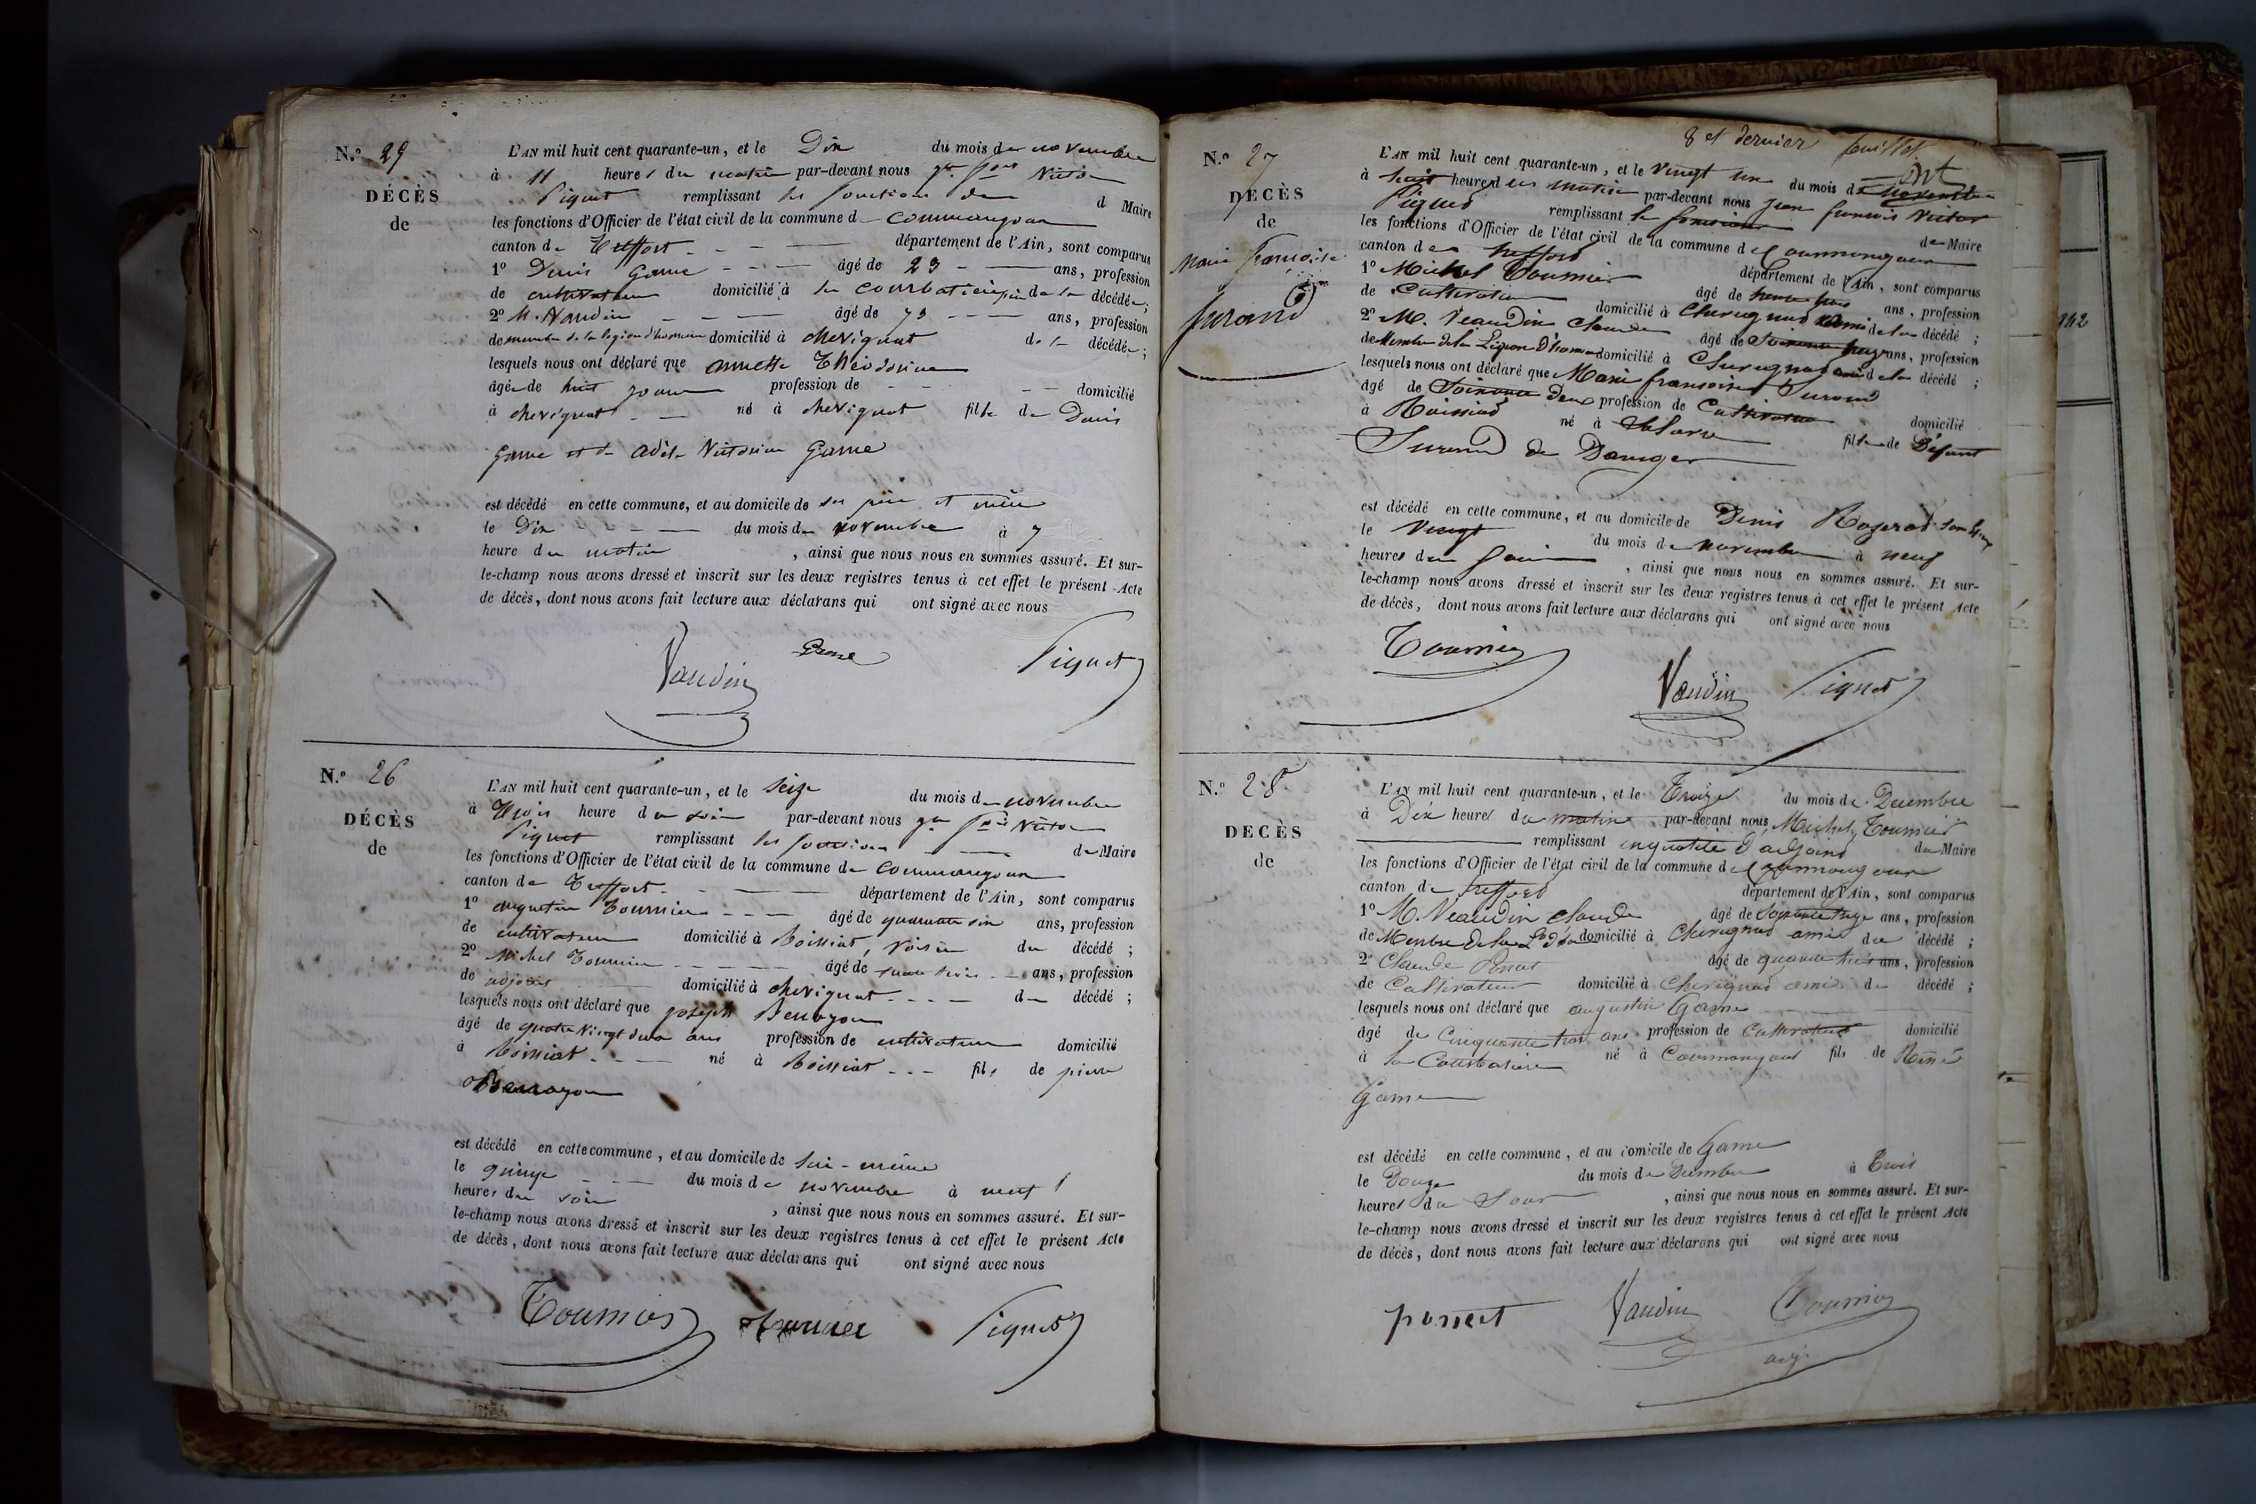 N.o 29
DÉCÈS
de
L'AN mil huit cent quarante-un, et le Dix du mois de novembre
à 11 heures du matin par-devant nous Victor
Piquet remplissant les fonctions de d Maire
les fonctions d'Officier de l'état civil de la commune de Courmangoux
canton de Treffort département de l'Ain, sont comparus
1o Denis Game âgé de 23 ans, profession
de cultivateur domicilié à la courbatière père de la décédée;
2o M. Vaudin âgé de 73 ans, profession
de membre de la legion d'honneur domicilié à chevignat de la décédée;
lesquels nous ont déclaré que annette Théodorine
âgée de huit jours profession de domicilié
à chevignat né à chevignat fille de Denis
Game et de adèle Victorine Game
est décédé en cette commune, et au domicile de ses père et mère
le Dix du mois de novembre à 7
heure du matin , ainsi que nous nous en sommes assuré. Et sur-
le-champ nous avons dressé et inscrit sur les deux registres tenus à cet effet le présent Acte
de décès, dont nous avons fait lecture aux déclarans qui ont signé avec nous
Vaudin Game Piquet
N.o 26
DÉCÈS
de
L'AN mil huit cent quarante-un, et le Seize du mois de novembre
à Trois heure du soir par-devant nous Victor
Piquet remplissant les fonctions de Maire
les fonctions d'Officier de l'état civil de la commune de Courmangoux
canton de Treffort département de l'Ain, sont comparus
1o augustin Tournier âgé de quarante six ans, profession
de cultivateur domicilié à Roissiat, voisin du décédé;
2o Michel Tournier âgé de trente trois ans, profession
de adjoint domicilié à chevignat du décédé;
lesquels nous ont déclaré que joseph
âgé de quatre vingt deux ans profession de cultivateur domicilié
à Roissiat né à Roissiat fils de pierre
est décédé en cette commune, et au domicile de Soi-même
le quinze du mois de novembre à neuf
heures du soir , ainsi que nous nous en sommes assuré. Et sur-
le-champ nous avons dressé et inscrit sur les deux registres tenus à cet effet le présent Acte
de décès, dont nous avons fait lecture aux déclarans qui ont signé avec nous
Tournier Tournier Piquet
8 et dernier feuillet
N.o 27
DÉCÈS
de
Marie françoise
Surand
L'AN mil huit cent quarante-un, et le vingt un du mois de novembre
à huit heures du matin par-devant nous jean francois Victor
Piquet remplissant les fonctions de Maire
les fonctions d'Officier de l'état civil de la commune de Courmangoux
canton de treffort département de l'Ain, sont comparus
1o Michel Tournier âgé de trente trois ans, profession
de Cultivateur domicilié à Chevignat ami de la décédé;
2o M. Veaudin Claude âgé de Soixante treize ans, profession
de Membre de la Légion d'honneur domicilié à Chevignat ami de la décédé;
lesquels nous ont déclaré que Marie francoise Surand
âgé de Soixante Deux profession de Cultivateur domicilié
à Roissiat né à fille de Défunt
Surand de
est décédé en cette commune, et au domicile de Denis son
le vingt du mois de novembre à neuf
heures du soir , ainsi que nous nous en sommes assuré. Et sur-
le-champ nous avons dressé et inscrit sur les deux registres tenus à cet effet le présent Acte
de décès, dont nous avons fait lecture aux déclarans qui ont signé avec nous
Tournier Vaudin Piquet
N.o 28
DÉCÈS
de
L'AN mil huit cent quarante-un, et le Treize du mois de Décembre
à Dix heures du matin par-devant nous Michel Tournier
remplissant en qualité d'adjoint du Maire
les fonctions d'Officier de l'état civil de la commune de Courmangoux
canton de treffort département de l'Ain, sont comparus
1o M. Veaudin Claude âgé de Soixante treize ans, profession
de Membre de la Ln d'h domicilié à Chevignat ami du décédé;
2o Claude Ponset âgé de quarante trois ans, profession
de Cultivateur domicilié à Chevignat ami du décédé;
lesquels nous ont déclaré que augustin Game
âgé de Cinquante trois ans profession de Cultivateur domicilié
à la Courbatière né à Courmangoux fils de
Game
est décédé en cette commune, et au domicile de Game
le Douze du mois de Décembre à trois
heures du Soir , ainsi que nous nous en sommes assuré. Et sur-
le-champ nous avons dressé et inscrit sur les deux registres tenus à cet effet le présent Acte
de décès, dont nous avons fait lecture aux déclarans qui ont signé avec nous
ponset Vaudin Tournier
adj.